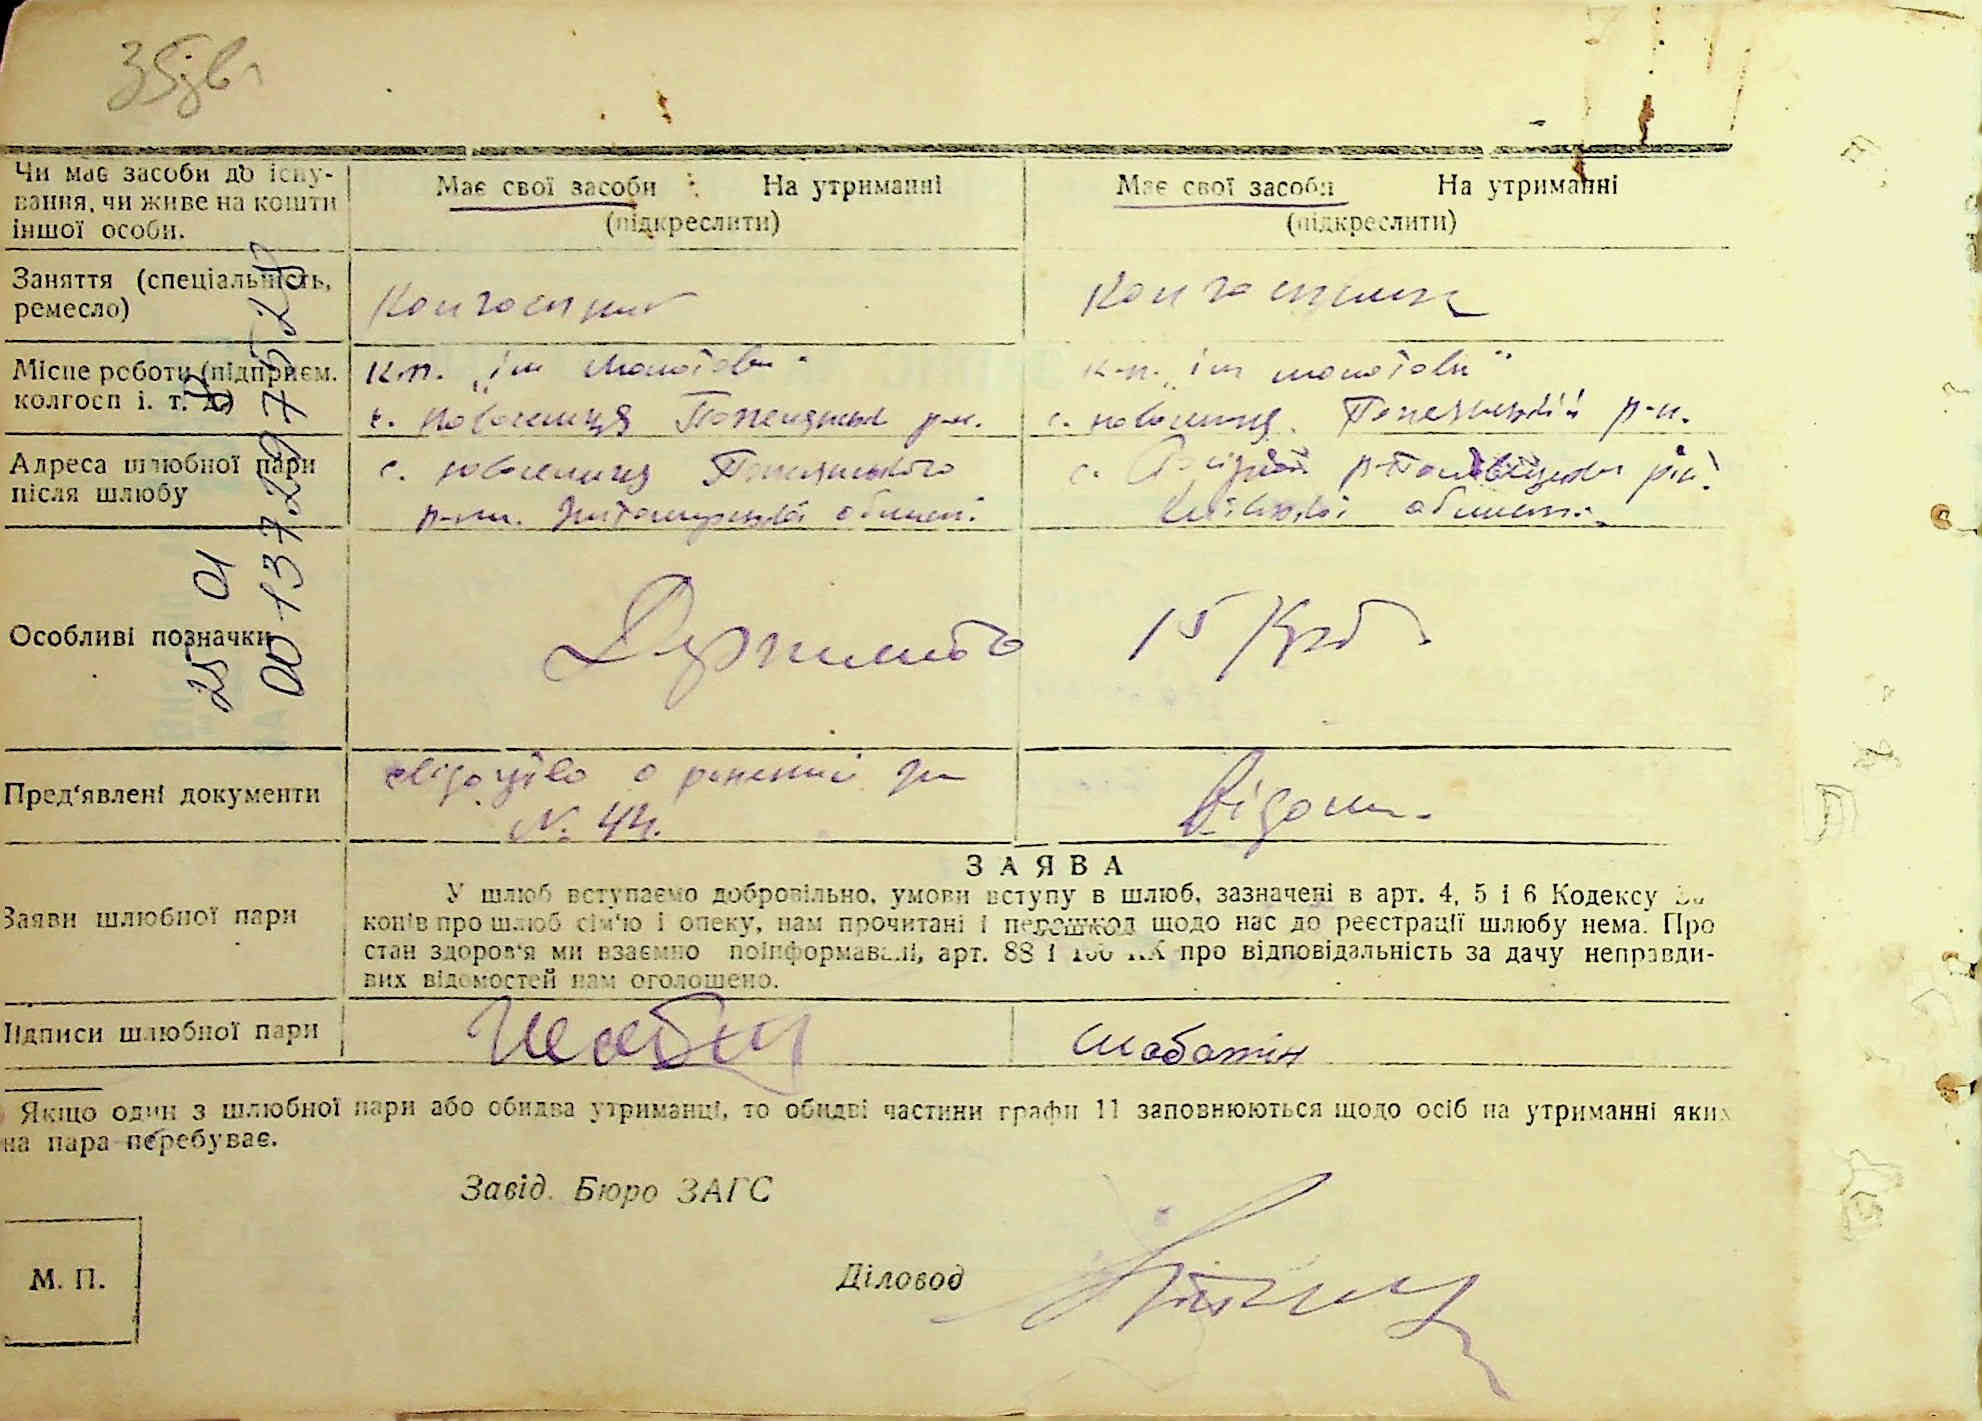 Чи має засоби до існу-
вання, чи живе на кошти
іншої особи.
Має свої засоби На утриманні
(підкреслити)
Має свої засоби На утриманні
(підкреслити)
Заняття (спеціальність,
ремесло)
Колгоспник
Колгоспниця
Місце роботи (підприєм.
колгосп і. т. д.)
к-п. „ім Молотова“
с. Новоселиця Попільнянськ р-н.
к-п. „ім Молотова“
с. Новоселиця Попільнянській р-н.
Адреса шлюбної пари
після шлюбу
с. Новоселиця Попільнянського
р-ну. Житомирської області
с.
Київської області.
Особливі позначки
25 01
00 137297524
15 Крб.
Пред'явлені документи
Свідоцтво о
№ 44.
Відом.
Заяви шлюбної пари
ЗАЯВА
У шлюб вступаємо добровільно, умови вступу в шлюб, зазначені в арт. 4, 5 і 6 Кодексу За
конів про шлюб сім'ю і опеку, нам прочитані і перешкод щодо нас до реєстрації шлюбу нема. Про
стан здоров'я ми взаємно поінформавалі, арт. 88 і КК про відповідальність за дачу неправди-
вих відомостей нам оголошено.
Підписи шлюбної пари
Шабатін
Якщо один з шлюбної пари або обидва утриманці, то обидві частини графи 11 заповнюються щодо осіб на утриманні яких
на пара перебуває.
Завід. Бюро ЗАГС
М. П.
Діловод